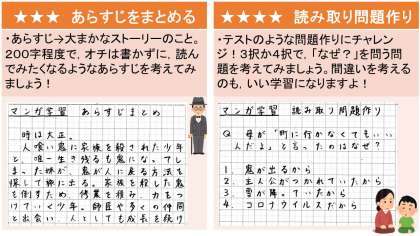 ★★★ あらすじをまとめる
・あらすじ→大まかなストーリーのこと。
200字程度で、オチは書かずに、読んでみたくなるようなあらすじを考えてみましょう！
マンガ学習 あらすじまとめ
時は大正。
人喰い鬼に家族を殺された少年と、唯一生き残るも鬼になってしまった妹が、鬼が人に戻る方法を探して旅に出る。家族を殺した鬼を倒すため、修業を積み、力をつけていく少年。師匠や多くの仲間と出会い、人としても成長を続け
★★★★ 読み取り問題作り
・テストのような問題作りにチャレンジ！3択か4択で、「なぜ？」を問う問題を考えてみましょう。間違いを考えるのも、いい学習になりますよ！
マンガ学習 読み取り問題作り
Q 母が「町に行かなくてもいいんだよ」と言ったのはなぜ？
1. 鬼が出るから
2. 主人公がつかれていたから
3. 雪が降っていたから
4. コロナウイルスだから